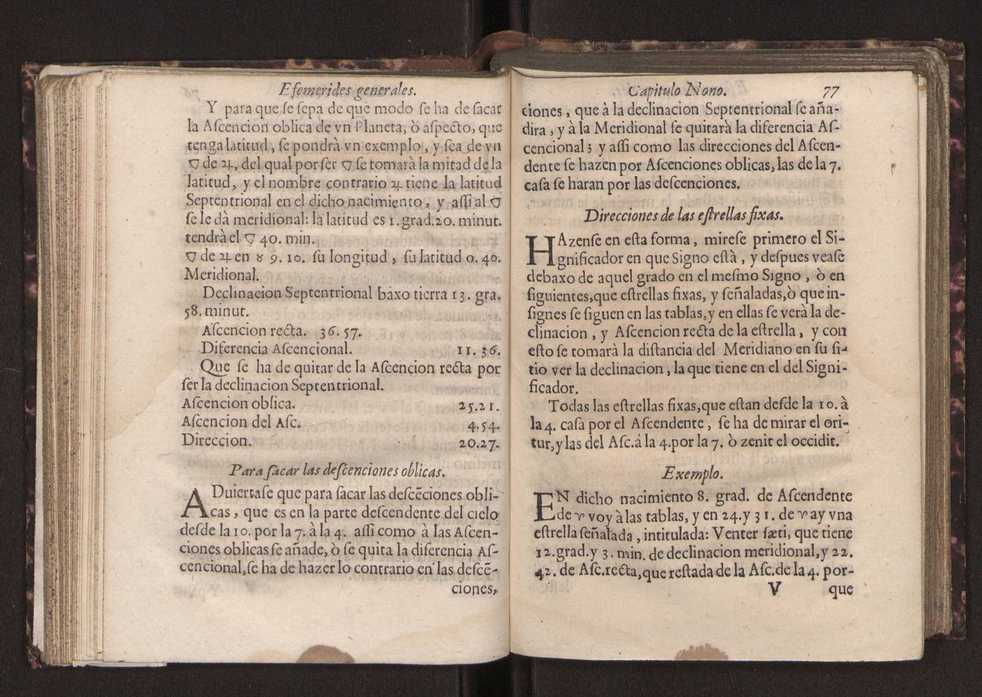 Efemerides generales.
Y para que ſe ſepa de que modo ſe ha de ſacar
la Aſcencion oblica de vn Planeta, ò aſpecto, que
tenga latitud, ſe pondrà vn exemplo, y ſea de vn
▽ de ♃, del qual por ſer ▽ ſe tomarà la mitad de la
latitud, y el nombre contrario ♃ tiene la latitud
Septentrional en el dicho nacimiento, y aſſi al ▽
ſe le dà meridional: la latitud es 1. grad. 20. minut.
tendrà el ▽ 40. min.
▽ de ♃ en ♉ 9. 10. ſu longitud, ſu latitud 0. 40.
Meridional.
Declinacion Septentrional baxo tierra 13. gra.
58. minut.
Aſcencion recta. 36. 57.
Diferencia Aſcencional. 11. 36.
Que ſe ha de quitar de la Aſcencion recta por
ſer la declinacion Septentrional.
Aſcencion oblica. 25.21.
Aſcencion del Aſc. 4.54.
Direccion. 20.27.
Para ſacar las deſcenciones oblicas.
ADuiertaſe que para ſacar las deſcēciones obli-
cas, que es en la parte deſcendente del cielo
deſde la 10. por la 7. à la 4. aſſi como à las Aſcen-
ciones oblicas ſe añade, ò ſe quita la diferencia Aſ-
cencional, ſe ha de hazer lo contrario en las deſcē-
ciones,
Capitulo Nono. 77
ciones, que à la declinacion Septentrional ſe aña-
dira, y à la Meridional ſe quitarà la diferencia Aſ-
cencional; y aſſi como las direcciones del Aſcen-
dente ſe hazen por Aſcenciones oblicas, las de la 7.
caſa ſe haran por las deſcenciones.
Direcciones de las eſtrellas fixas.
HAzenſe en eſta forma, mireſe primero el Si-
gnificador en que Signo eſtà, y deſpues veaſe
debaxo de aquel grado en el meſmo Signo, ò en
ſiguientes, que eſtrellas fixas, y ſeñaladas, ò que in-
ſignes ſe ſiguen en las tablas, y en ellas ſe verà la de-
clinacion, y Aſcencion recta de la eſtrella, y con
eſto ſe tomarà la diſtancia del Meridiano en ſu ſi-
tio ver la declinacion, la que tiene en el del Signi-
ficador.
Todas las eſtrellas fixas, que eſtan deſde la 10. à
la 4. caſa por el Aſcendente, ſe ha de mirar el ori-
tur, y las del Aſc. à la 4. por la 7. ò zenit el occidit.
Exemplo.
EN dicho nacimiento 8. grad. de Aſcendente
de ♈ voy à las tablas, y en 24. y 31. de ♈ ay vna
eſtrella ſeñalada, intitulada: Venter ſæti, que tiene
12. grad. y 3. min. de declinacion meridional, y 22.
42. de Aſc. recta, que reſtada de la Aſc. de la 4. por-
V que